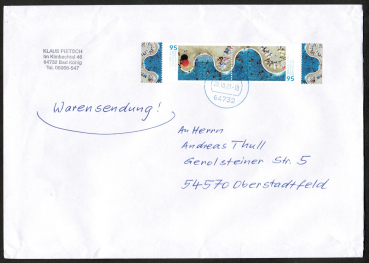 KLAUS PIETSCH
Im Kimbachtal 40
64732 Bad König
Tel. 06066-547
95
95
64732
Warensendung!
An Herrn
Andreas Thull
Gerolsteiner Str. 5
54570 Oberstadtfeld